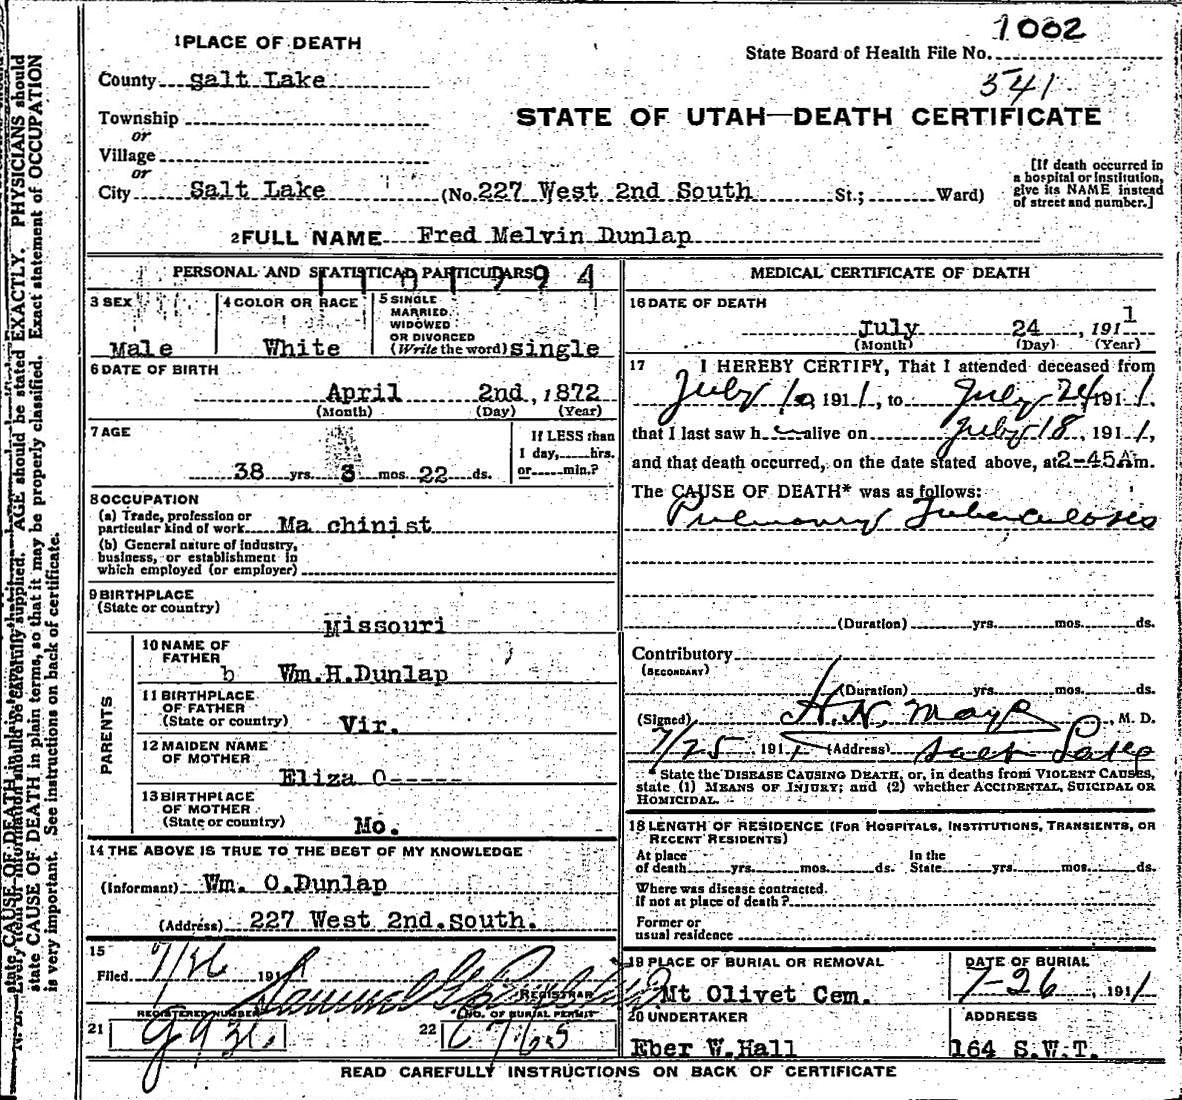 1002
State Board of Health File No.
541
1 PLACE OF DEATH
County Salt Lake
STATE OF UTAH—DEATH CERTIFICATE
Township
or
Village
or
City Salt Lake (No. 227 West 2nd South St.; Ward)
[If death occurred in
a hospital or institution,
give its NAME instead
of street and number.]
2 FULL NAME Fred Melvin Dunlap
PERSONAL AND STATISTICAL PARTICULARS
3 SEX
Male
4 COLOR OR RACE
White
5 SINGLE
MARRIED
WIDOWED
OR DIVORCED
(Write the word) single
6 DATE OF BIRTH
April 2nd, 1872
(Month) (Day) (Year)
7 AGE
38 yrs. 3 mos. 22 ds.
If LESS than
1 day, hrs.
or min.?
8 OCCUPATION
(a) Trade, profession or
particular kind of work Ma chinist
(b) General nature of industry,
business, or establishment in
which employed (or employer)
9 BIRTHPLACE
(State or country)
Missouri
PARENTS
10 NAME OF
FATHER
b Wm.H.Dunlap
11 BIRTHPLACE
OF FATHER
(State or country) Vir.
12 MAIDEN NAME
OF MOTHER
Eliza O-----
13 BIRTHPLACE
OF MOTHER
(State or country) Mo.
14 THE ABOVE IS TRUE TO THE BEST OF MY KNOWLEDGE
(Informant) Wm. O.Dunlap
(Address) 227 West 2nd.South.
15
Filed 7/26 191
REGISTRAR
REGISTERED NUMBER
21
NO. OF BURIAL PERMIT
22
MEDICAL CERTIFICATE OF DEATH
16 DATE OF DEATH
July 24, 1911
(Month) (Day) (Year)
17 I HEREBY CERTIFY, That I attended deceased from
July 10, 1911, to July 24 1911,
that I last saw h alive on July 18, 1911,
and that death occurred, on the date stated above, at 2-45Am.
The CAUSE OF DEATH* was as follows:
Pulmonary Tuberculosis
(Duration) yrs. mos. ds.
Contributory
(SECONDARY)
(Duration) yrs. mos. ds.
(Signed) H.N. Mayo, M. D.
7/25 1911 (Address) Salt Lake
* State the DISEASE CAUSING DEATH, or, in deaths from VIOLENT CAUSES,
state (1) MEANS OF INJURY; and (2) whether ACCIDENTAL, SUICIDAL OR
HOMICIDAL.
18 LENGTH OF RESIDENCE (FOR HOSPITALS, INSTITUTIONS, TRANSIENTS, OR
RECENT RESIDENTS)
At place
of death yrs. mos. ds.
In the
State yrs. mos. ds.
Where was disease contracted.
if not at place of death?
Former or
usual residence
19 PLACE OF BURIAL OR REMOVAL
Mt Olivet Cem.
DATE OF BURIAL
7-26, 1911
20 UNDERTAKER
Eber W.Hall
ADDRESS
164 S.W.T.
READ CAREFULLY INSTRUCTIONS ON BACK OF CERTIFICATE
N. B. Every item of information should be carefully supplied. AGE should be stated EXACTLY. PHYSICIANS should
state CAUSE OF DEATH in plain terms, so that it may be properly classified. Exact statement of OCCUPATION
is very important. See instructions on back of certificate.